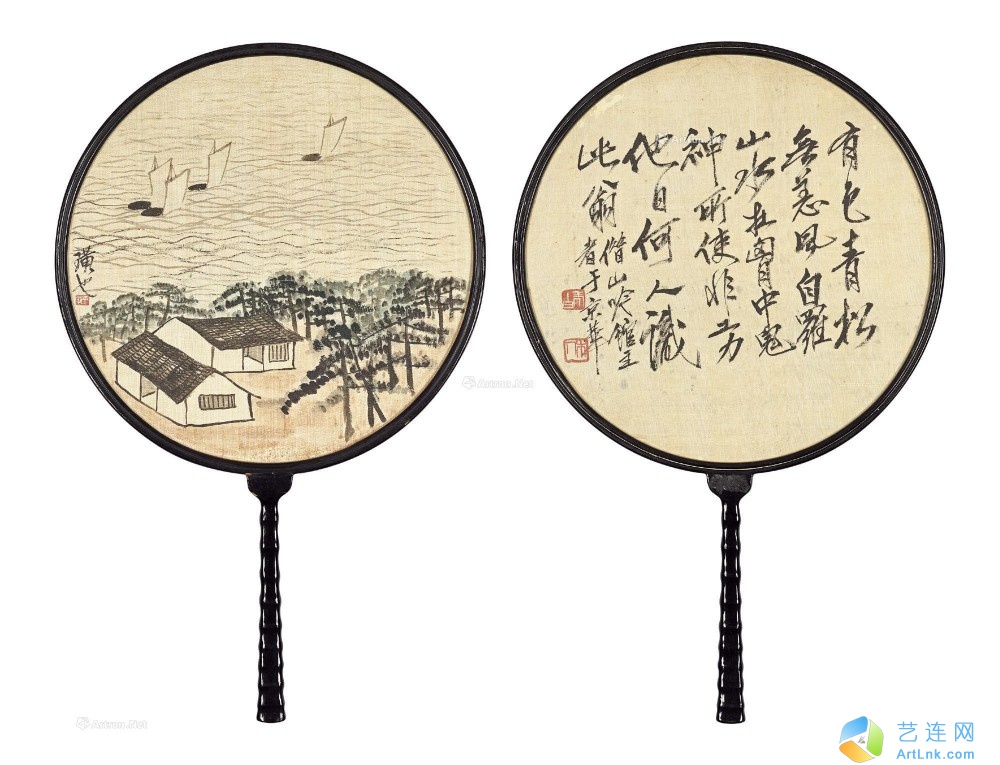 璜也
有色青松
無恙風白羅
山水在胷中鬼
神所使非
他日何人識
此翁 借山吟館主
者于京華
Artron.Net
Artron.Net
艺连网
ArtLnk.com